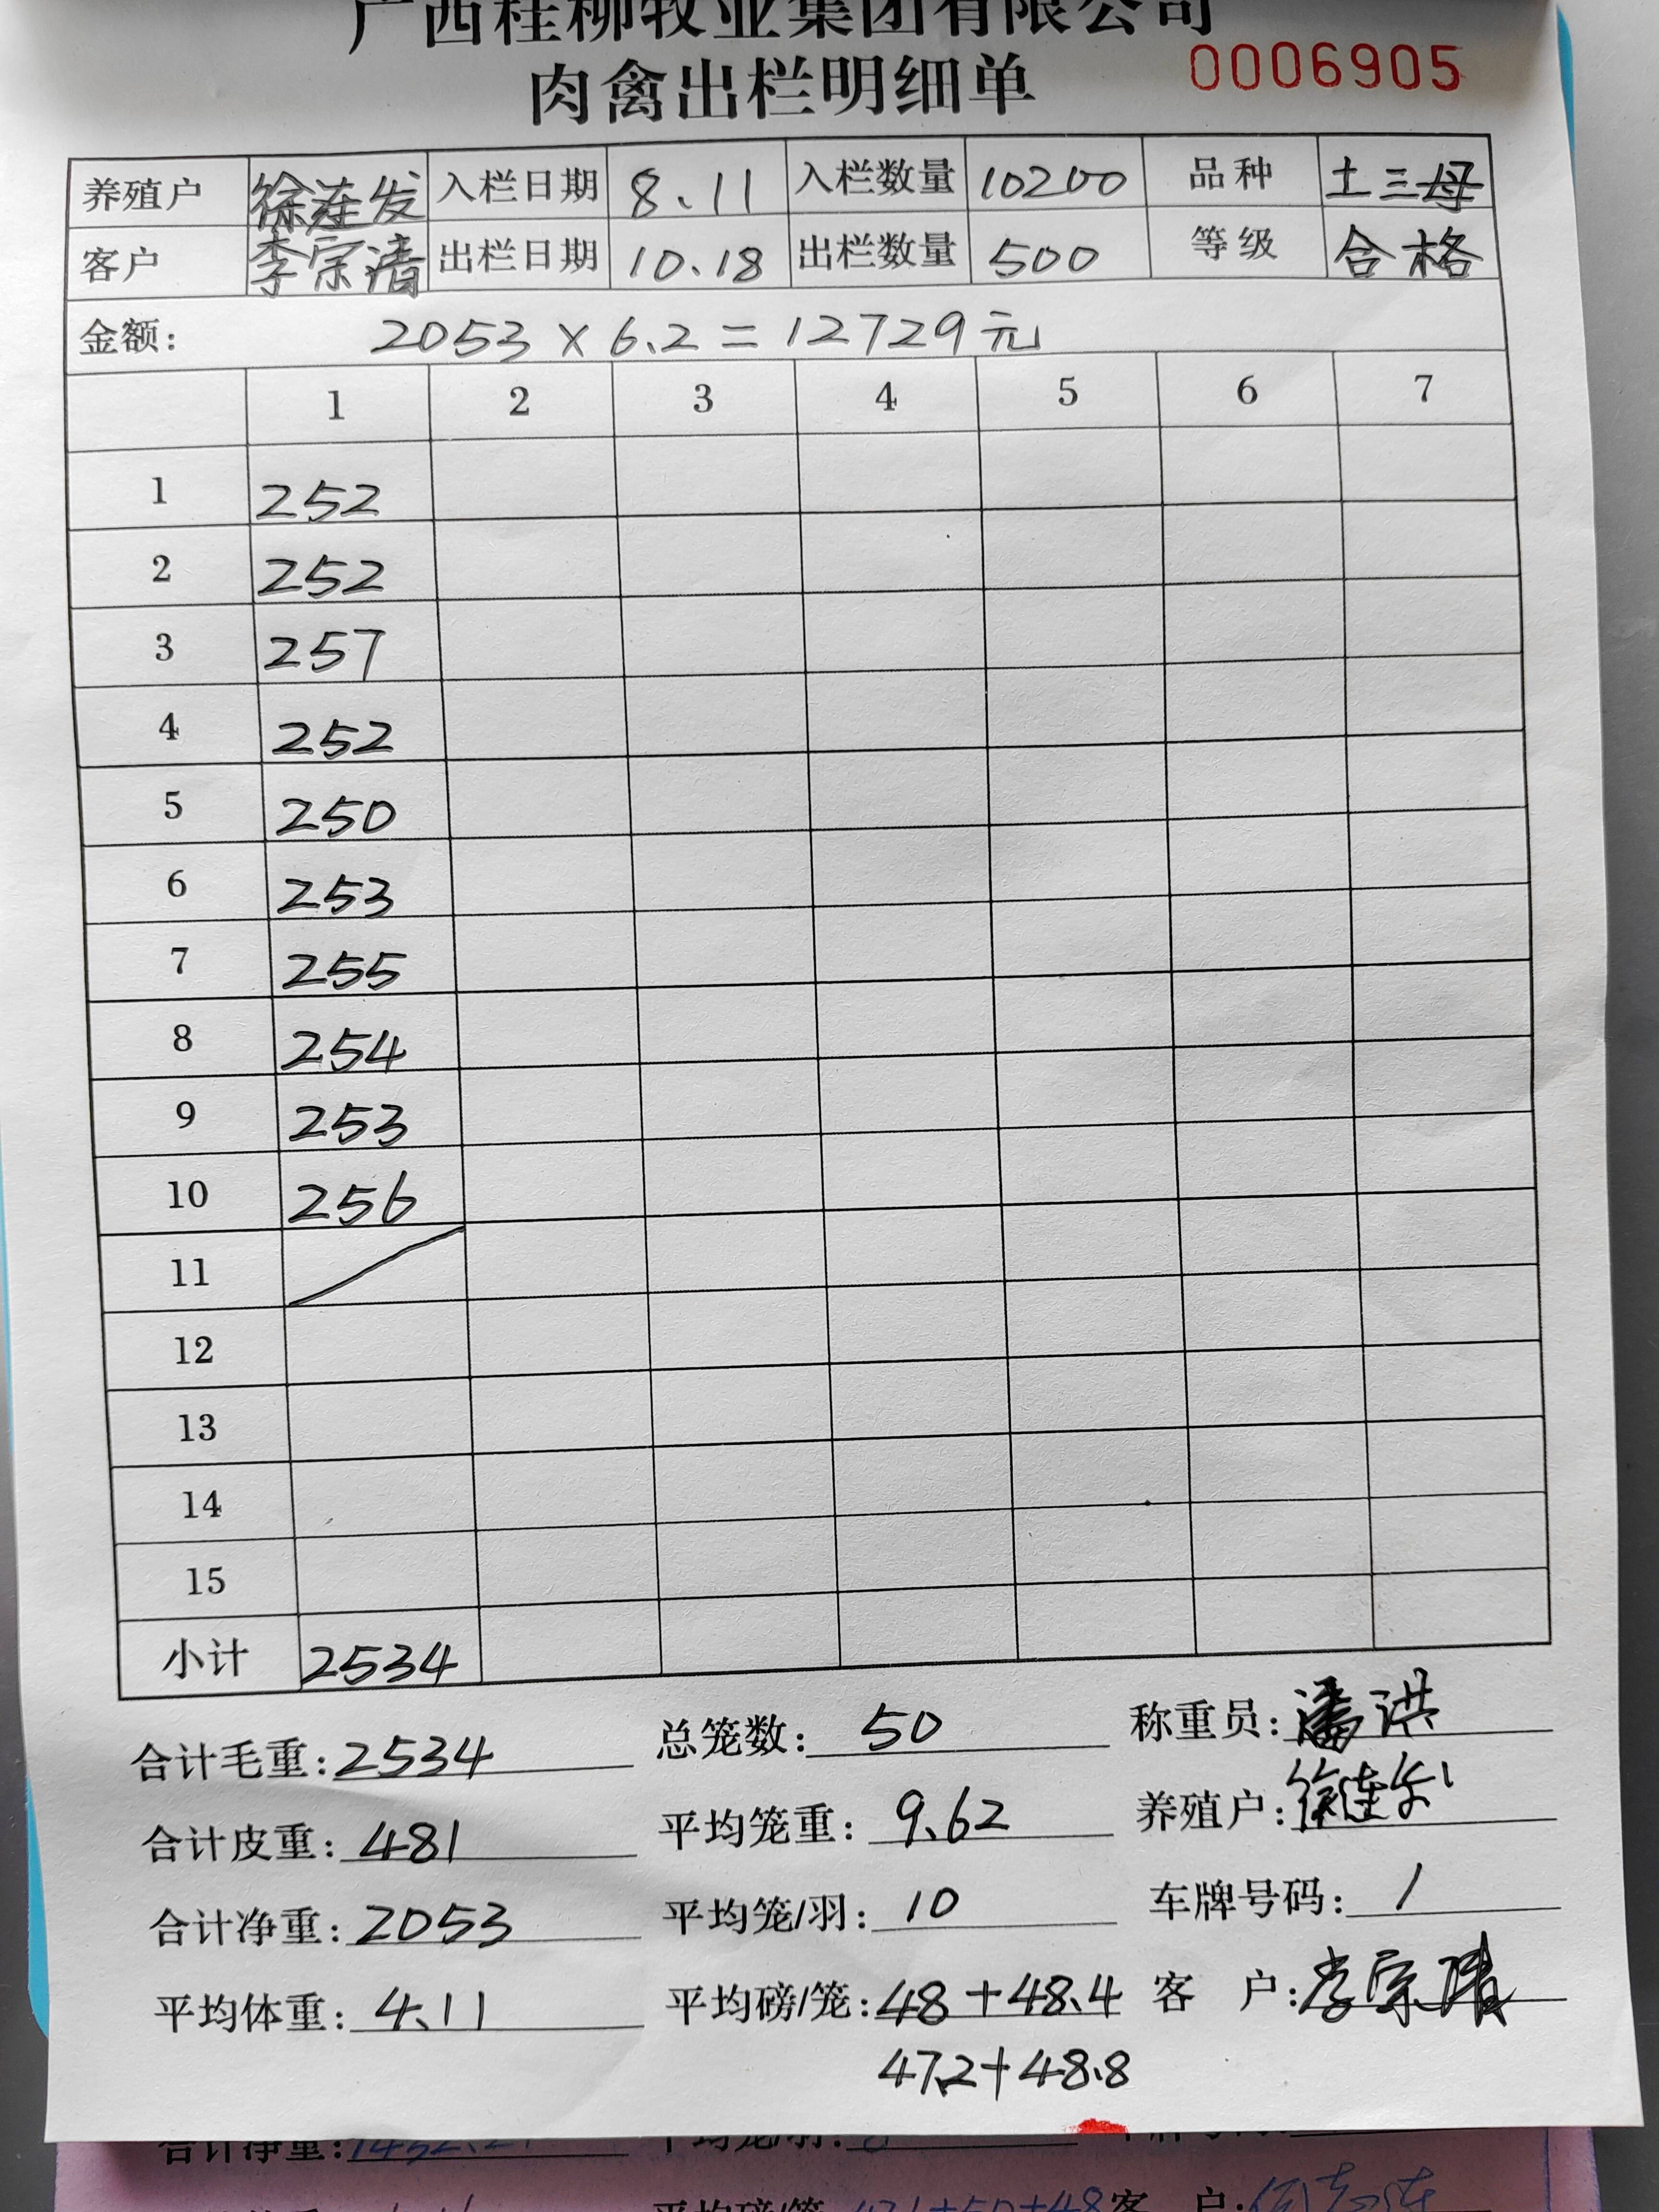 广西桂柳牧业集团有限公司
肉禽出栏明细单 0006905
养殖户 徐连发 入栏日期 8.11 入栏数量 10200 品种 土三母
客户 李宗清 出栏日期 10.18 出栏数量 500 等级 合格
金额: 2053 × 6.2 = 12729元
1 2 3 4 5 6 7
1 252
2 252
3 257
4 252
5 250
6 253
7 255
8 254
9 253
10 256
11
12
13
14
15
小计 2534
合计毛重: 2534 总笼数: 50 称重员: 潘洪
合计皮重: 481 平均笼重: 9.62 养殖户: 徐连发
合计净重: 2053 平均笼/羽: 10 车牌号码: /
平均体重: 4.11 平均磅/笼: 48+48.4 客 户: 李宗清
47.2+48.8
合计净重: